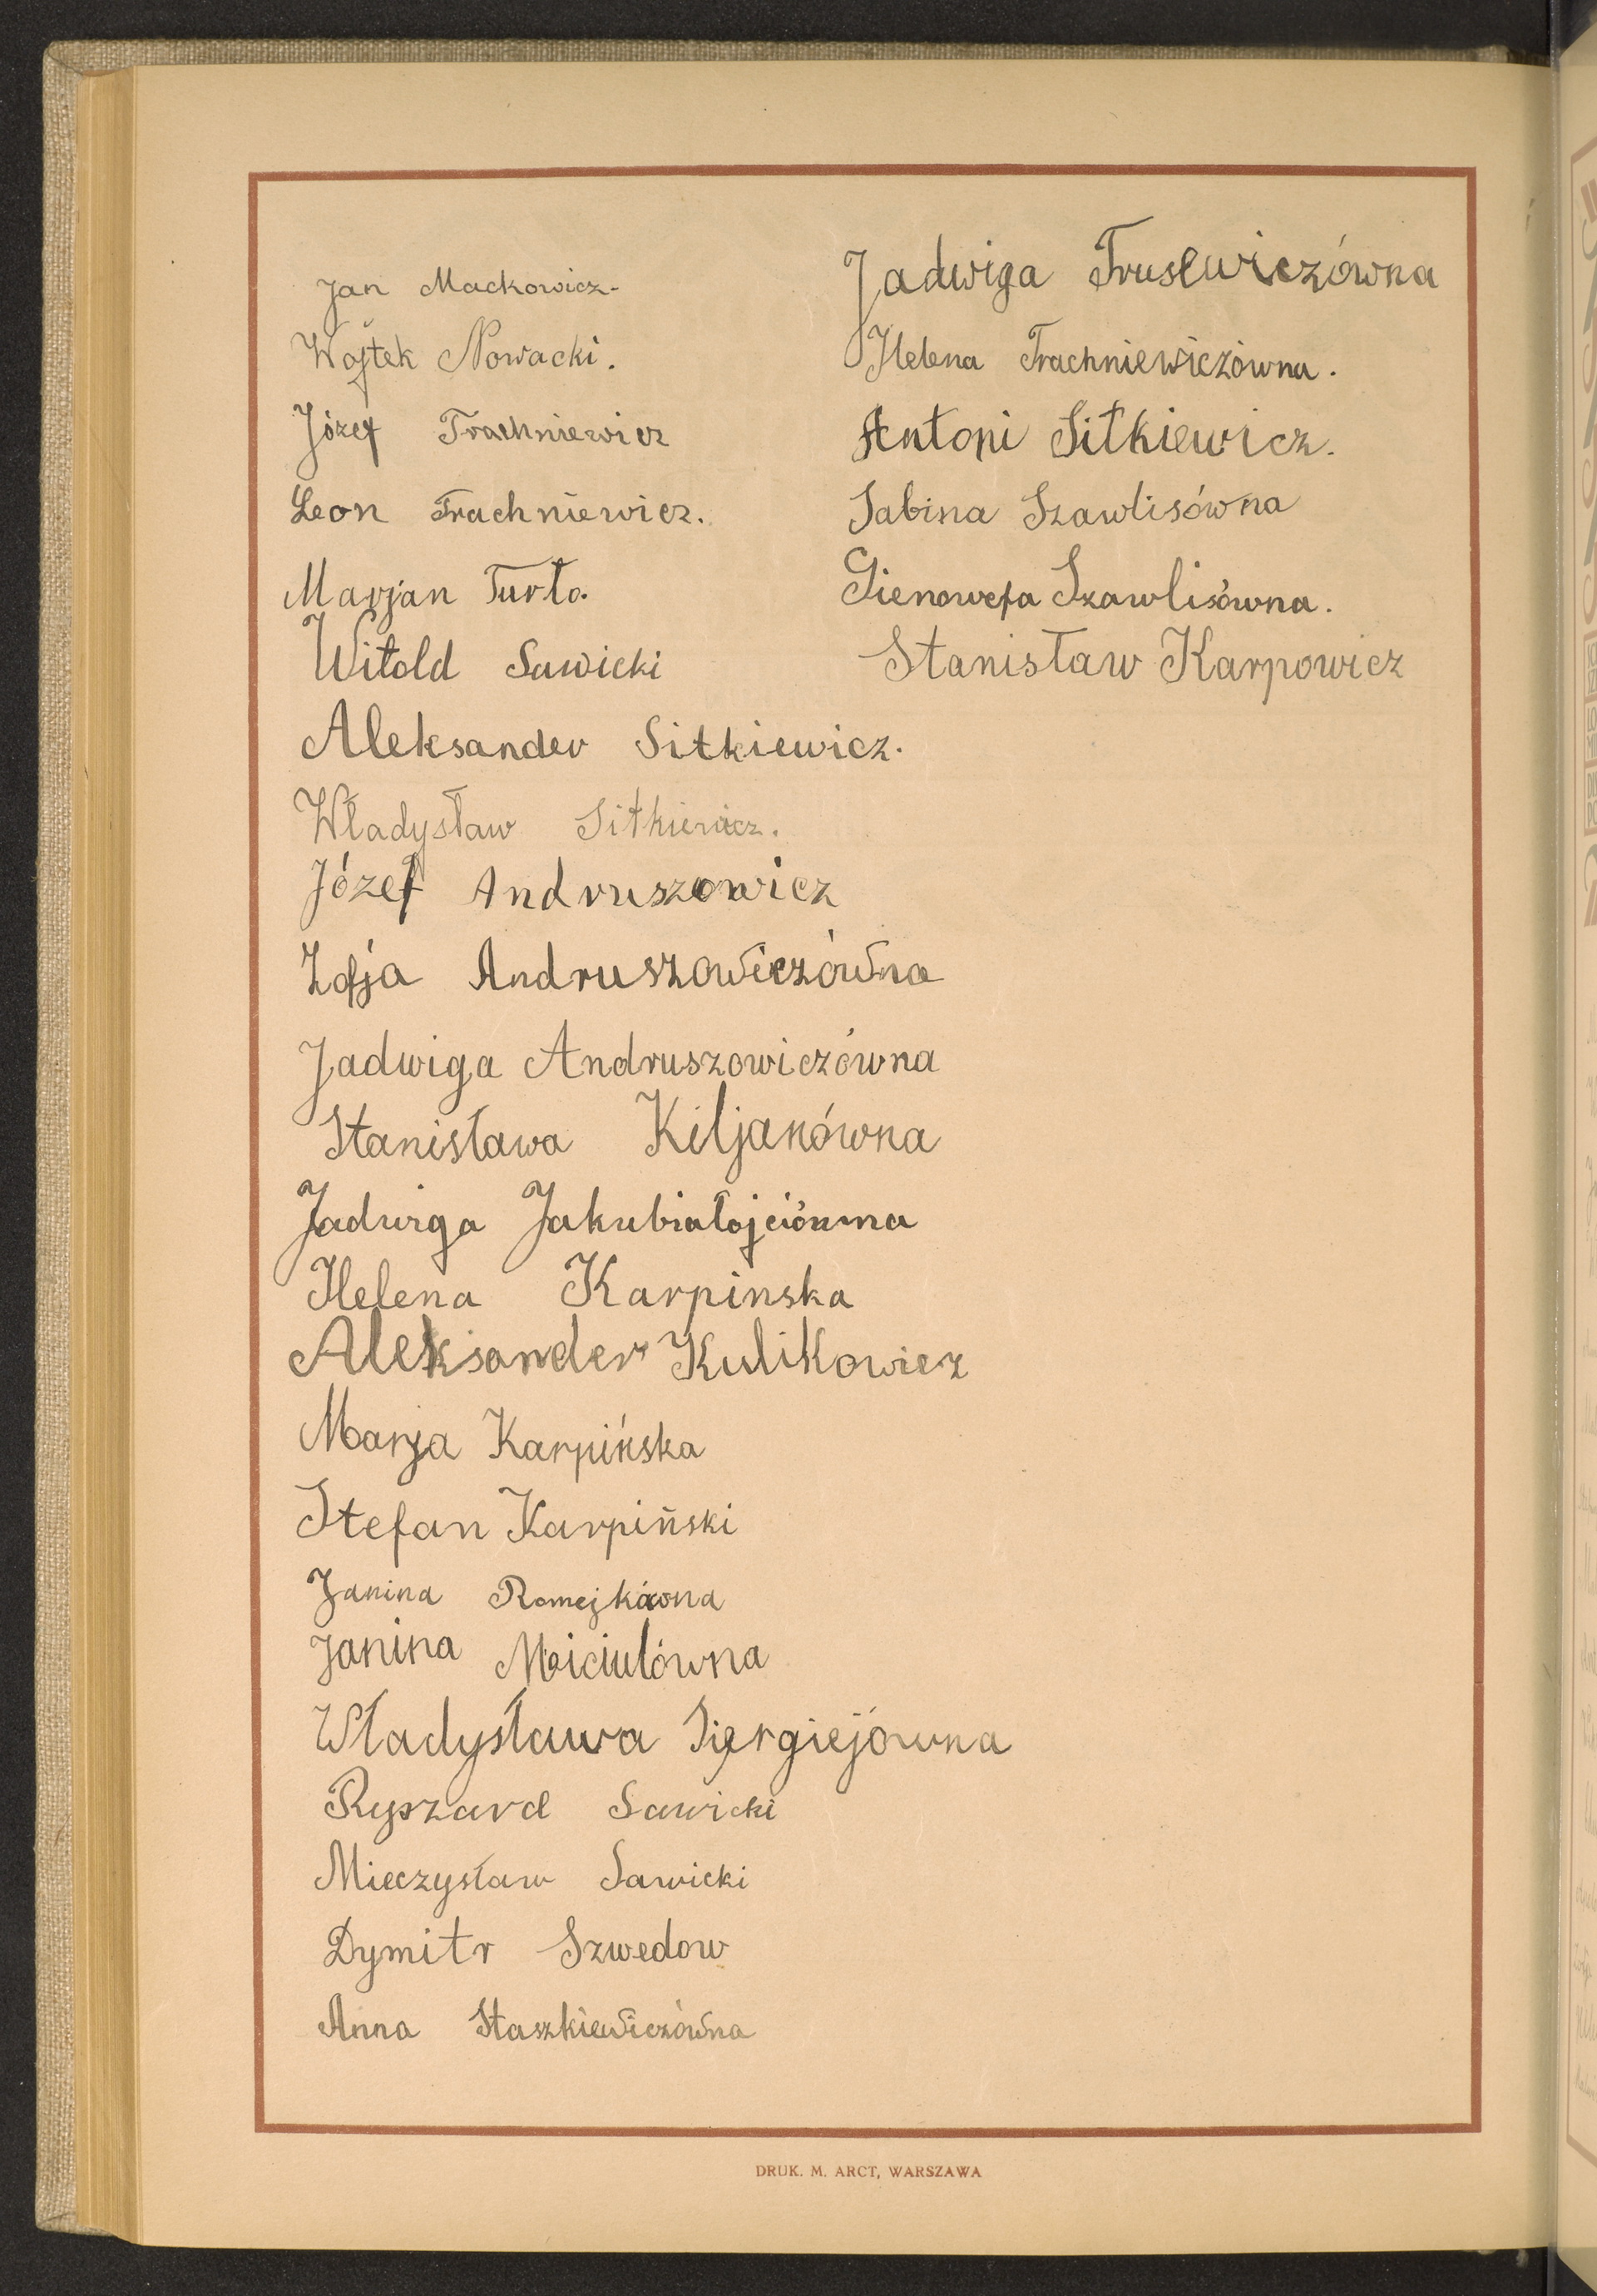 Jan Mackowicz-
Wojtek Nowacki.
Józef Trachniewicz
Leon Trachniewicz.
Marjan Turło.
Witold Sawicki
Aleksander Sitkiewicz.
Władysław Sitkiewicz.
Józef Andruszowicz
Zofja Andruszowiczówna
Jadwiga Andruszowiczówna
Stanisława Kiljanówna
Jadwiga Jakubiałojciówna
Helena Karpinska
Aleksander Kulikowicz
Marja Karpińska
Stefan Karpiński
Janina Romejkówna
Janina Maciulówna
Władysława Siergiejówna
Ryszard Sawicki
Mieczysław Sawicki
Dymitr Szwedow
Anna Staszkiewiczówna
Jadwiga Trusewiczówna
Helena Trachniewiczówna.
Antoni Sitkiewicz.
Sabina Szawlisówna
Gienowefa Szawlisówna.
Stanisław Karpowicz
DRUK. M. ARCT, WARSZAWA